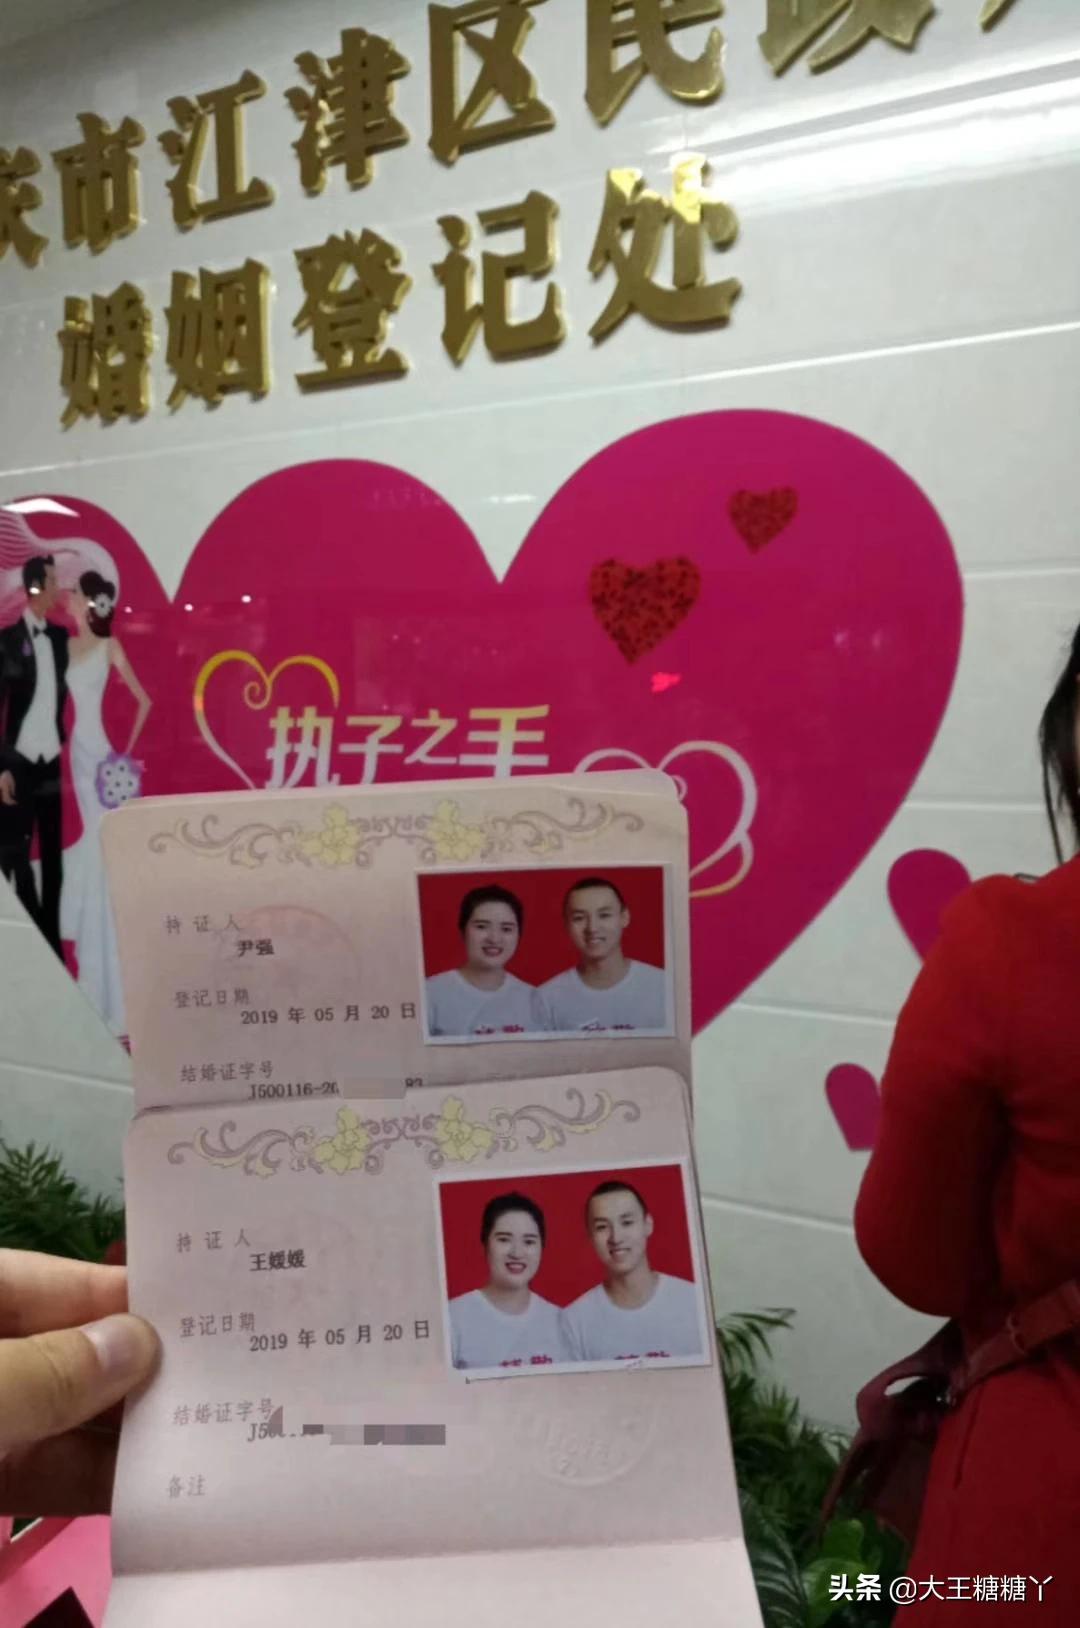 庆市江津区民政局
婚姻登记处
执子之手
持证人
尹强
登记日期
2019 年 05 月 20 日
结婚证字号
J500116-20
持证人
王媛媛
登记日期
2019 年 05 月 20 日
结婚证字号
备注
头条 @大王糖糖丫